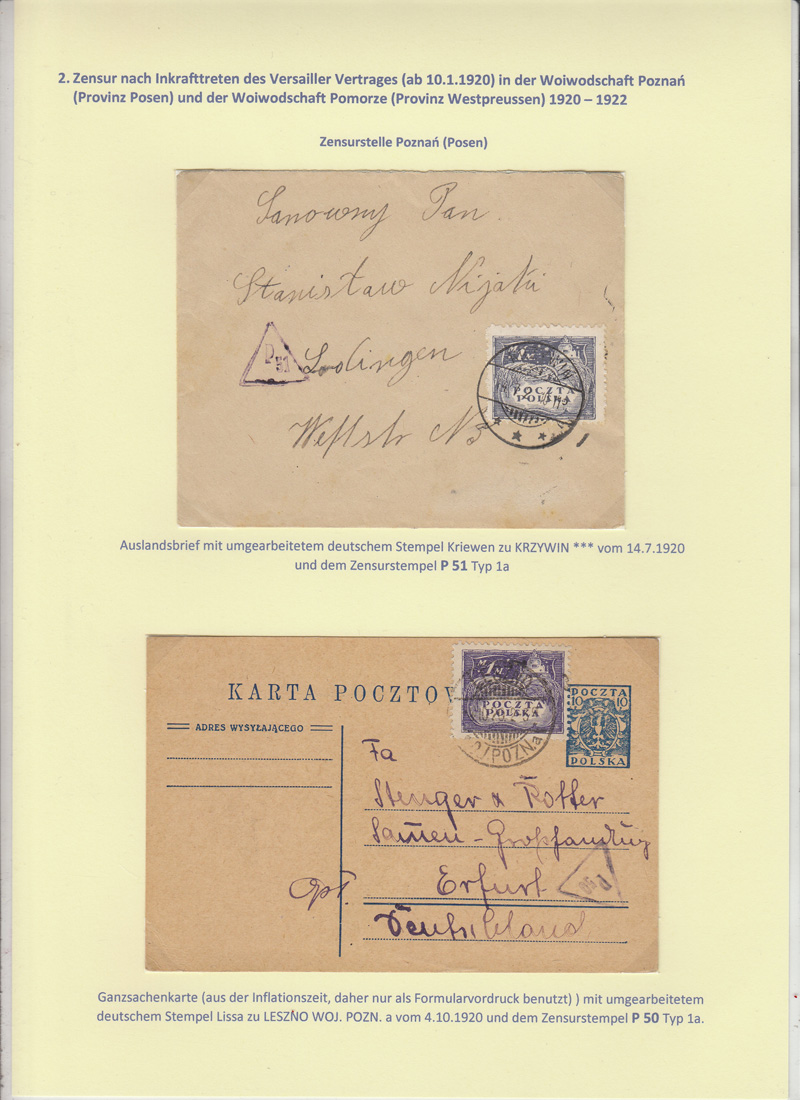 2. Zensur nach Inkrafttreten des Versailler Vertrages (ab 10.1.1920) in der Woiwodschaft Poznań
(Provinz Posen) und der Woiwodschaft Pomorze (Provinz Westpreussen) 1920 – 1922
Zensurstelle Poznań (Posen)
Sanowny Pan
Stanisław Nijaki
P 51
Lodingen
POCZTA
POLSKA
Weststr N 3
Auslandsbrief mit umgearbeitetem deutschem Stempel Kriewen zu KRZYWIN *** vom 14.7.1920
und dem Zensurstempel P 51 Typ 1a
KARTA POCZTOW
M 1 M
POCZTA
POLSKA
POCZTA
10 10
POLSKA
ADRES WYSYŁAJĄCEGO
POZN. a
Fa
Stenger & Rotter
Samen-Großhandlung
Erfurt
P 50
Deutschland
Ganzsachenkarte (aus der Inflationszeit, daher nur als Formularvordruck benutzt) ) mit umgearbeitetem
deutschem Stempel Lissa zu LESZNO WOJ. POZN. a vom 4.10.1920 und dem Zensurstempel P 50 Typ 1a.